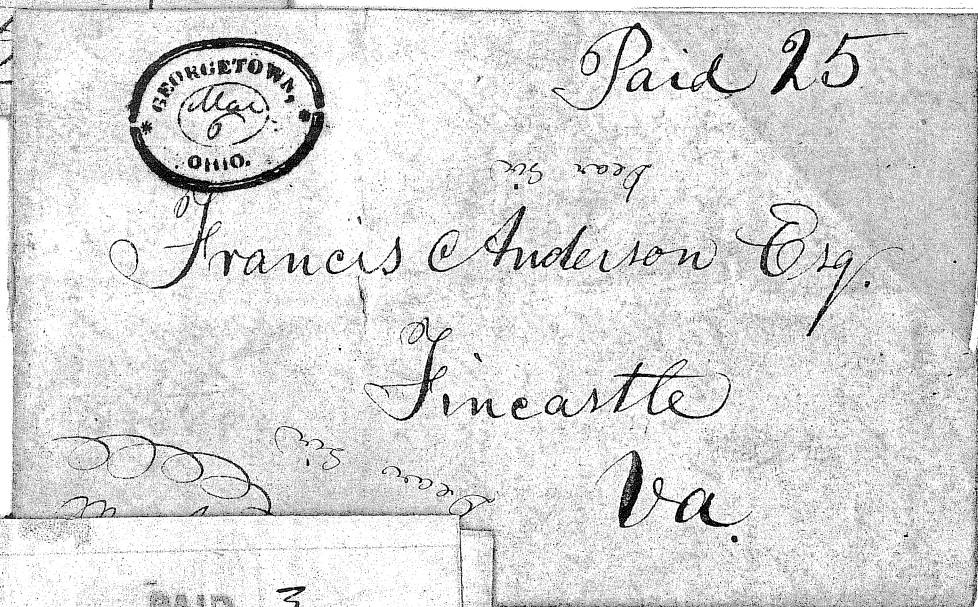 Paid 25
GEORGETOWN,
Mar
6
OHIO.
Dear Sir
Francis Anderson Esq.
Fincastle
Va.
Dear Sir
PAID 3